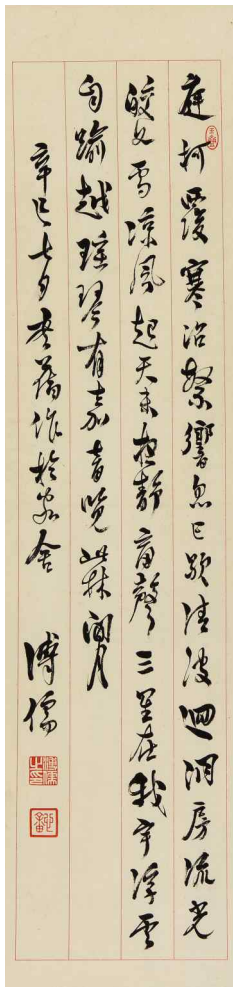 庭柯覆寒沼繁響忽已歇清波迴洞房流光
皎如雪涼風起天末夜静商聲三星在我宇浮雲
自踰越瑤琴有嘉音覽此林間月
辛巳七月書舊作於舍 溥儒